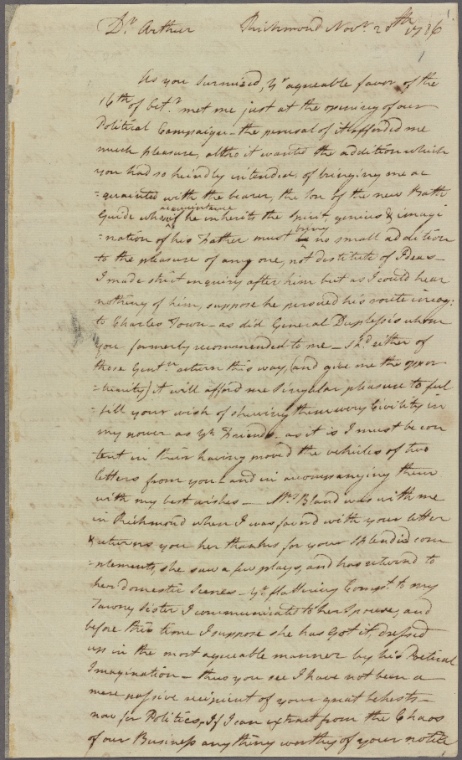 Dr. Arthur Richmond Novr. 20th 1786
As you surmised, yr. agreeable favor of the
16th of Octr. met me just at the opening of our
Political Campaign - the perusal of it afforded me
much pleasure, altho it wanted the addition which
you had so kindly intended of bringing me ac
=quainted with the bearer, the Son of the new Bath
Guide whose acquaintance if he inherits the Spirit, genius & imagi
=nation of his Father must bring no small addition
to the pleasure of any one, not destitute of Ideas -
I made strict enquiry after him but as I could hear
nothing of him, suppose he pursued his route
to Charles Town - as did General Duplessis whom
you formerly recommended to me - Shd. either of
these Gentn. return this way, (and give me the oppor
=tunity) it will afford me singular pleasure to ful
=fill your wish of shewing them every Civility in
my power as yr. Friends - as it is I must be con
tent in their having proved the vehicles of two
letters from you - and in accompanying them
with my best wishes - Mrs. Bland was with me
in Richmond when I was favord with your letter
& returns you her thanks for your Splendid com
=plements, she saw a few plays, and has returnd to
her Domestic Scenes - yr. flattering Compt. to my
Tawney Sister I communicated to her Spouse, and
before this time I suppose she has got it dressed
up in the most agreeable manner by his Poetical
Imagination - thus you see I have not been a
mere passive recipient of your great behests -
now for Politics, If I can extract from the Chaos
of our Business any thing worthy of your notice